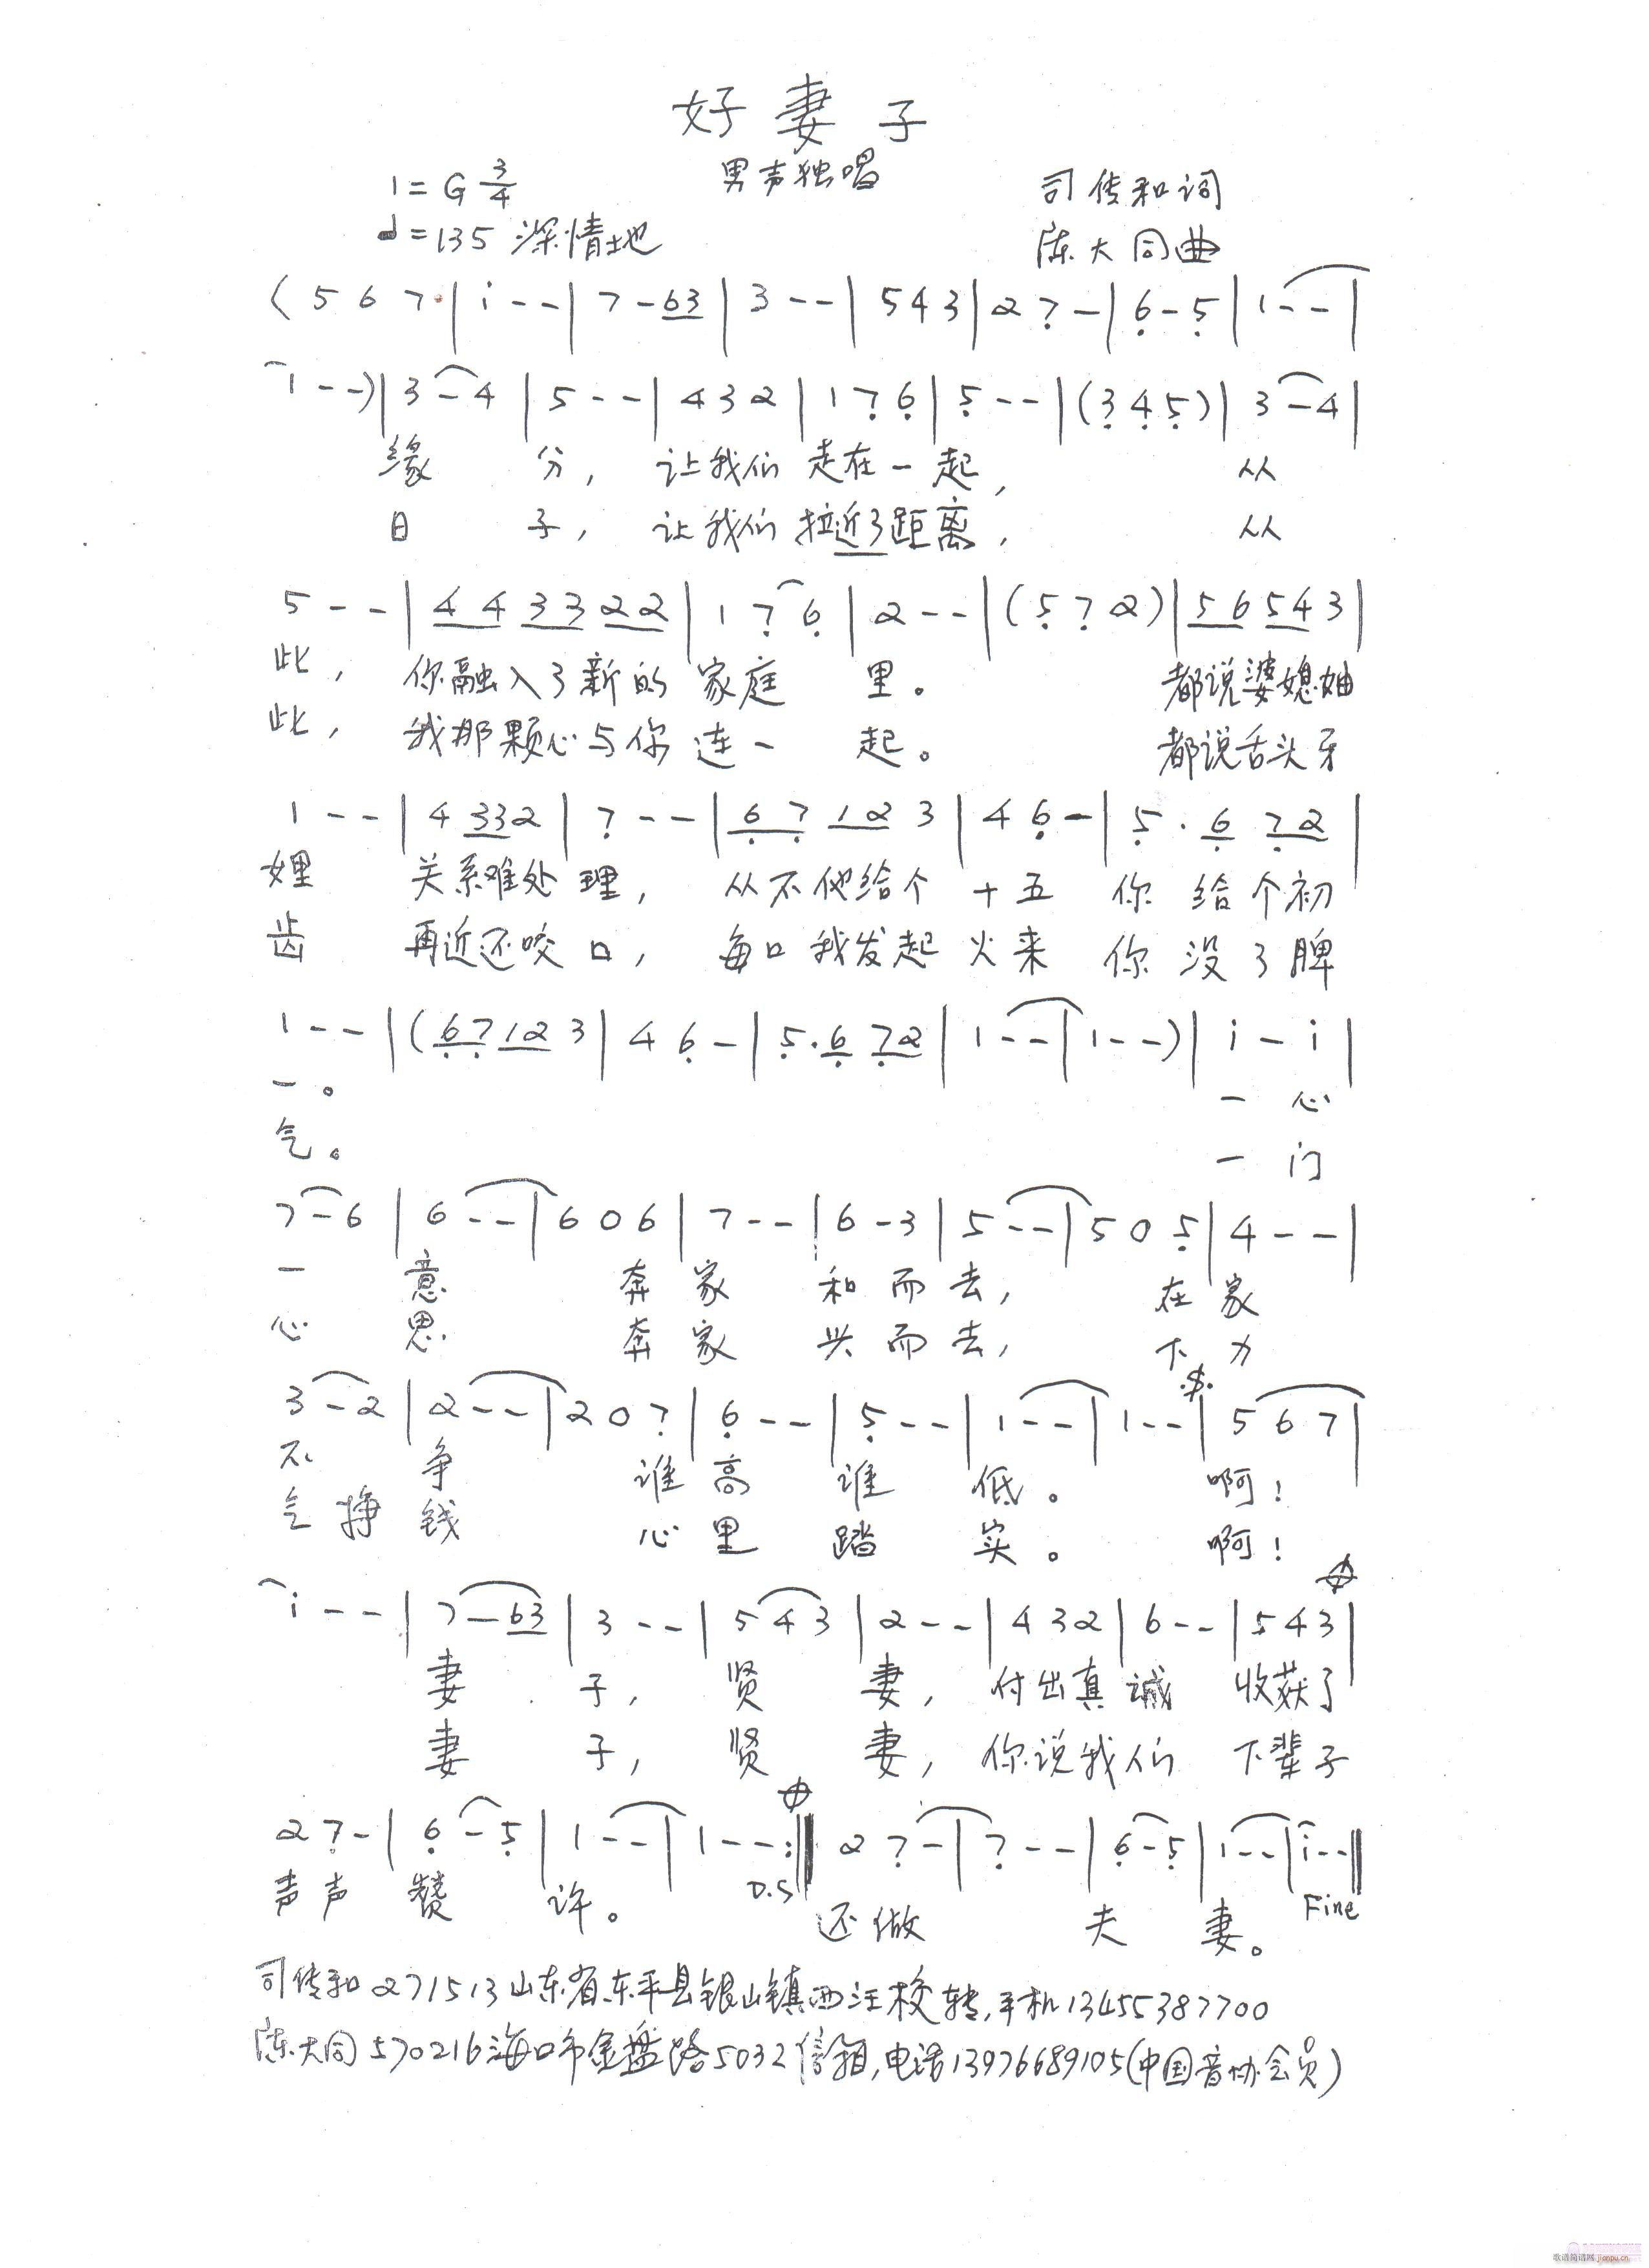 好妻子
男声独唱
1=G 3/4
司传和词
♩=135 深情地
陈大同曲
(5 6 7·|i - -|7 - 63|3 - -|5 4 3|2 7 -|6 - 5|1 - -|
1 - -)|3 - 4|5 - -|4 3 2|1 7 6|5 - -|(3 4 5)|3 - 4|
缘 分, 让我们走在一起, 从
日 子, 让我们拉近了距离, 从
5 - -|44 33 22|1 7 6|2 - -|(5 7 2)|56 54 3|
此, 你融入了新的家庭 里。 都说婆媳妯
此, 我那颗心与你连一 起。 都说舌头牙
1 - -|4 33 2|7 - -|67 12 3|4 6 -|5 · 6 72|
娌 关系难处理, 从不他给个十五 你给个初
齿 再近还咬口, 每口我发起火来 你没了脾
1 - -|(67 12 3|4 6 -|5 · 6 72|1 - -|1 - -)|i - i|
一。 一心
气。 一门
7 - 6|6 - -|6 0 6|7 - -|6 - 3|5 - -|5 0 5|4 - -|
一 意 奔家 和而去, 在家
心 思 奔家 兴而去, 下力
3 - 2|2 - -|2 0 7|6 - -|5 - -|1 - -|1 - -|5 6 7|
不 争 谁高 谁 低。 啊!
气挣钱 心里 踏 实。 啊!
i - -|7 - 63|3 - -|5 4 3|2 - -|4 3 2|6 - -|5 4 3|
妻 子, 贤 妻, 付出真诚 收获了
妻 子, 贤 妻, 你说我们 下辈子
2 7 -|6 - 5|1 - -|1 - -:‖ 2 7 -|7 - -|6 - 5|1 - -|i - -‖
声声 赞 许。 D.S 还做 夫 妻。 Fine
司传和 271513 山东省东平县银山镇西汪校转,手机13455387700
陈大同 570216 海口市金盘路5032信箱,电话13976689105(中国音协会员)
歌谱简谱网 jianpu.cn